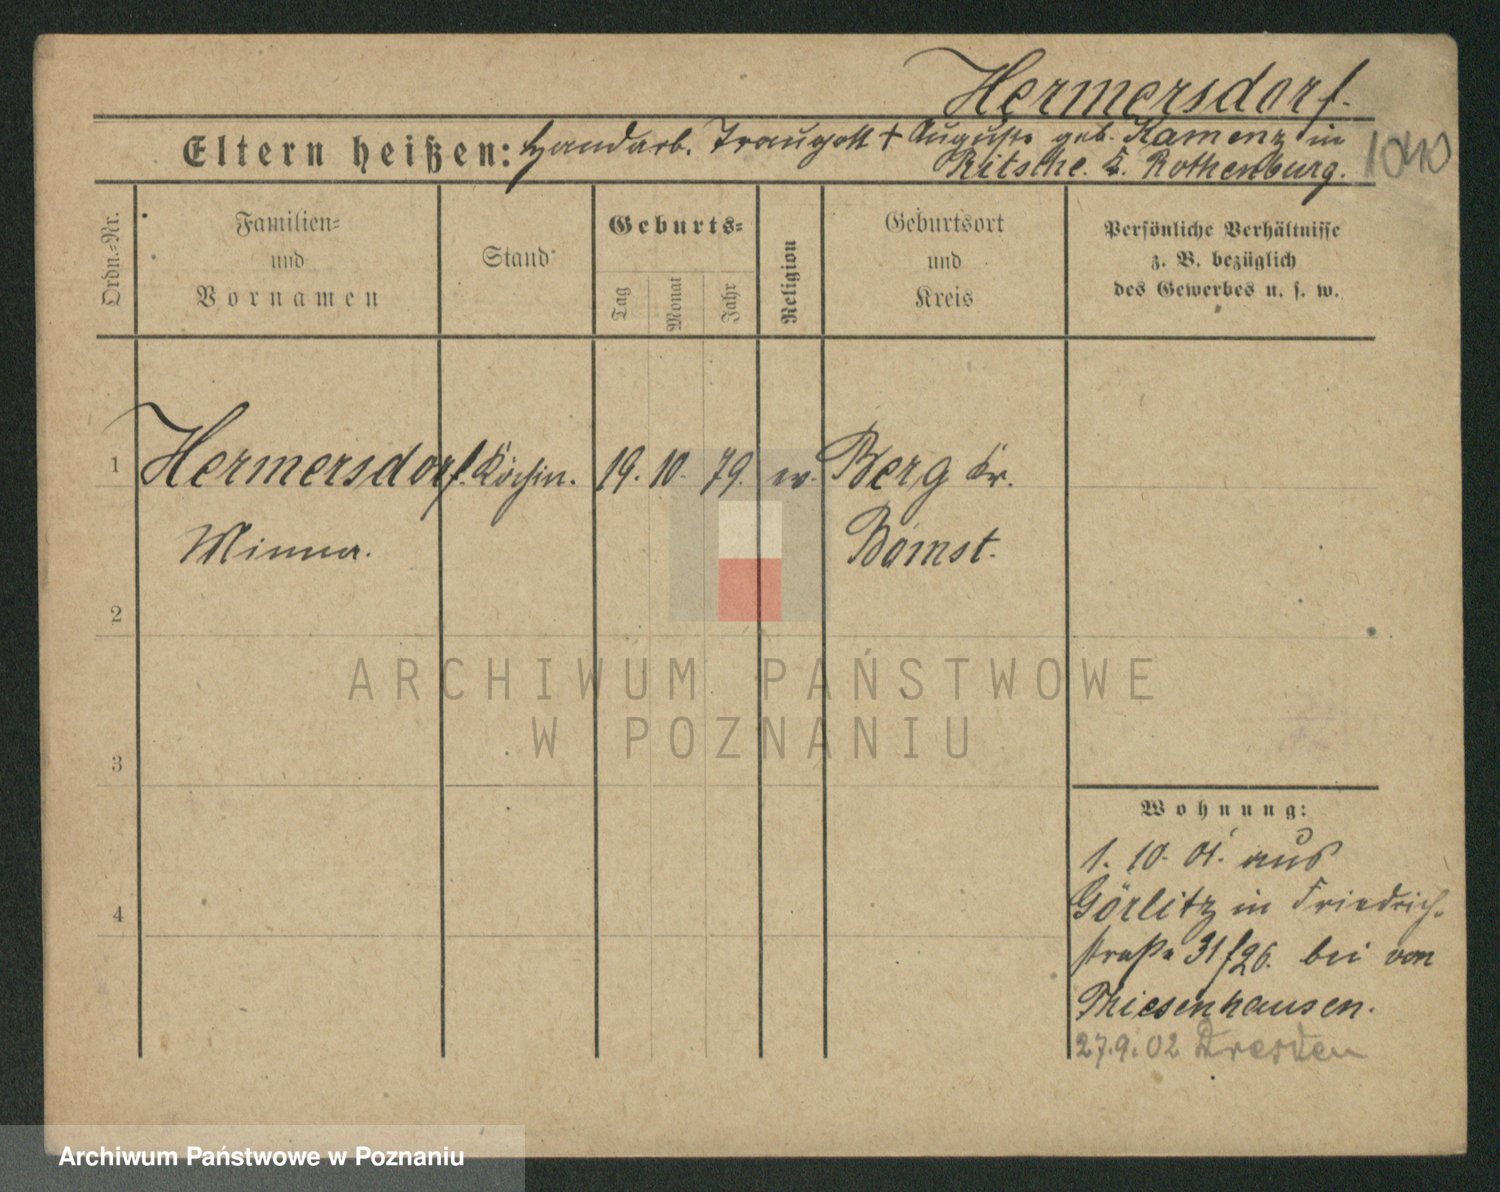 Hermersdorf.
Eltern heißen: Handarb. Traugott + Auguste geb. Kamenz in
Ritsche. K. Rothenburg.
1040
Ordn.-Nr.
Familien-
und
Vornamen
Stand
Geburts-
Tag
Monat
Jahr
Religion
Geburtsort
und
Kreis
Persönliche Verhältnisse
z. B. bezüglich
des Gewerbes u. s. w.
1 Hermersdorf. Köchin. 19. 10. 79. ev. Berg Kr.
Minna. Bomst.
2
3
4
ARCHIWUM PAŃSTWOWE
W POZNANIU
Wohnung:
1. 10. 01. aus
Görlitz in Friedrich-
straße 31 bei von
Thiesenhausen.
27.9.02 Dresden
Archiwum Państwowe w Poznaniu